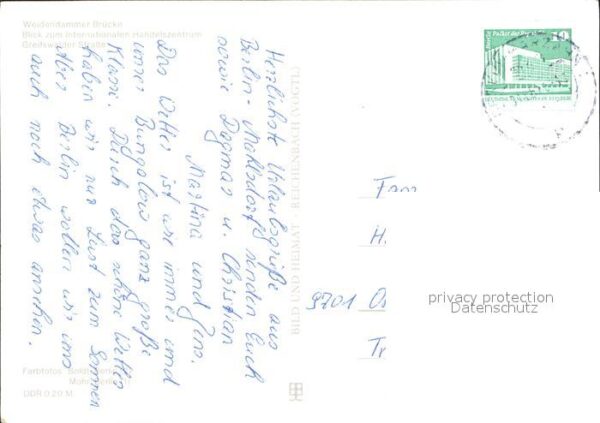 Weidendammer Brücke
Blick zum Internationalen Handelszentrum
Greifswalder Straße
Herzlichste Urlaubsgrüße aus
Berlin-Mahlsdorf senden Euch
sowie Dagmar u. Christian
Martina und Jens.
Das Wetter ist wie immer und
unser Bungalow ganz große
Klasse. Durch das schöne Wetter
haben wir nur Lust zum Sonnen
Aber Berlin wollen wir uns
auch noch etwas ansehen.
Farbfotos
DDR 0,20 M
BILD UND HEIMAT · REICHENBACH (VOGTL)
10
Berlin Palast der Republik
DEUTSCHE DEMOKRATISCHE REPUBLIK
Fam
H.
9701
Tr
privacy protection
Datenschutz